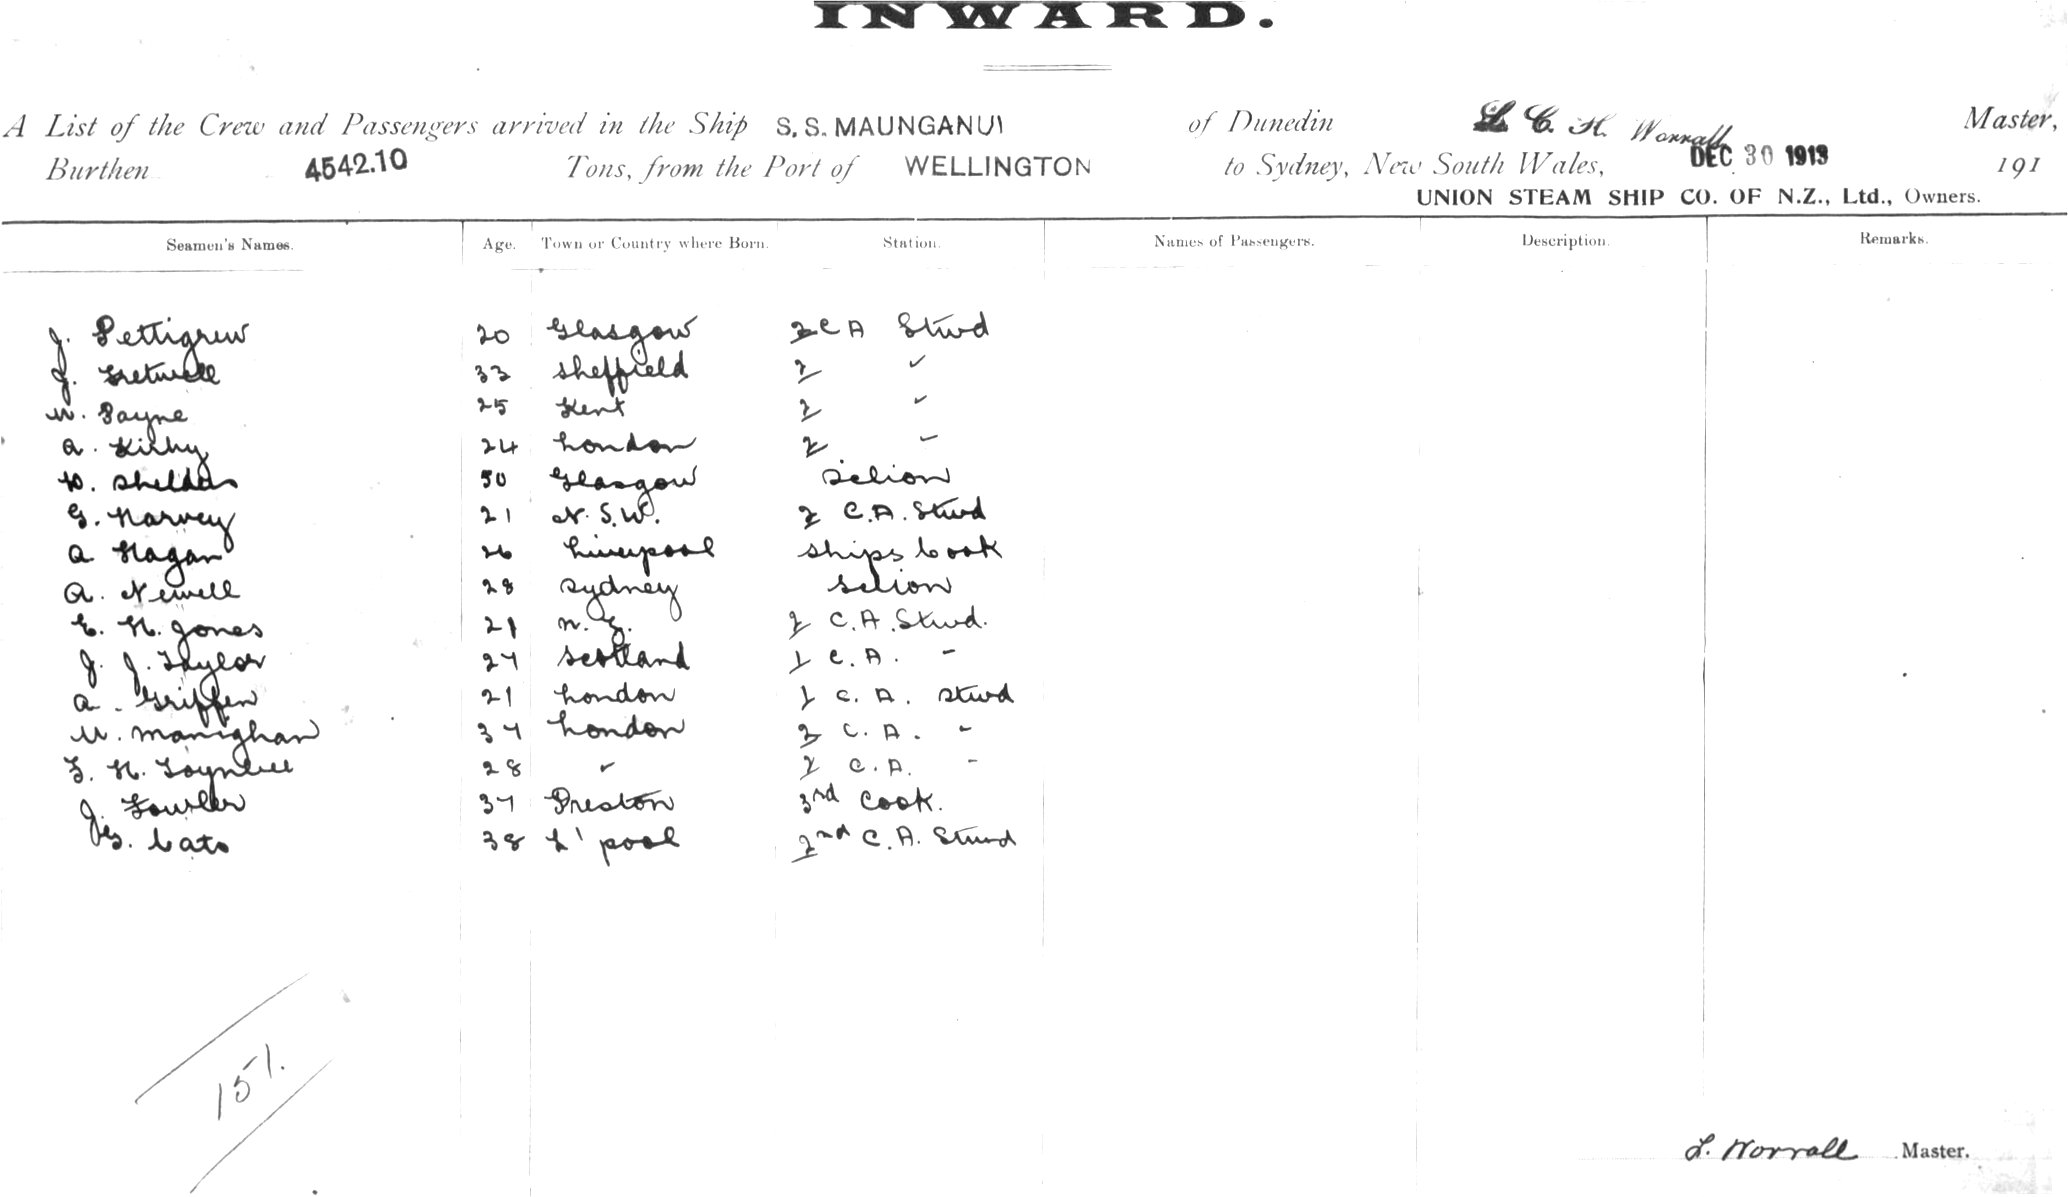 INWARD.
A List of the Crew and Passengers arrived in the Ship S.S. MAUNGANUI of Dunedin L C. H. Worrall Master,
Burthen 4542.10 Tons, from the Port of WELLINGTON to Sydney, New South Wales, DEC 30 1913 191
UNION STEAM SHIP CO. OF N.Z., Ltd., Owners.
Seamen's Names. Age. Town or Country where Born. Station. Names of Passengers. Description. Remarks.
J. Pettigrew 20 Glasgow 2 C A Stwd
J. Fretwell 33 Sheffield 2 "
W. Payne 25 Kent 2 "
A. Kirby 24 London 2 "
Sheldon 50 Glasgow
G. Harvey 21 N.S.W. 2 C.A. Stwd
A Hagan 26 Liverpool Ships Cook
A. Newell 28 Sydney
E. H. Jones 21 N.Z. 2 C.A. Stwd.
J. J. Taylor 27 Scotland 1 C.A. "
A. Griffen 21 London 1 C.A. Stwd
W. Manighan 37 London 2 C.A. "
F. H. 28 " 2 C.A. "
J. Fowler 37 Preston 3rd Cook.
G. Cato 38 L'pool 2nd C.A. Stwd
15/.
L. Worrall Master.